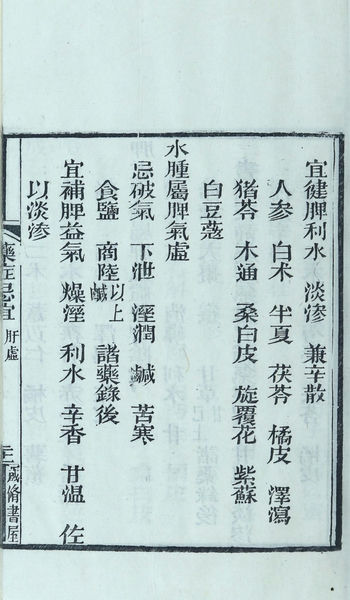 宜健脾利水 淡滲 兼辛散
人參 白术 半夏 茯苓 橘皮 澤瀉
猪苓 木通 桑白皮 旋覆花 紫蘇
白豆蔻
水腫屬脾氣虛
忌破氣 下泄 溼潤 鹹 苦寒
食鹽 商陸 以上鹹 諸藥錄後
宜補脾益氣 燥溼 利水 辛香 甘温 佐
以淡滲
藥症忌宜 肝虛
修書屋